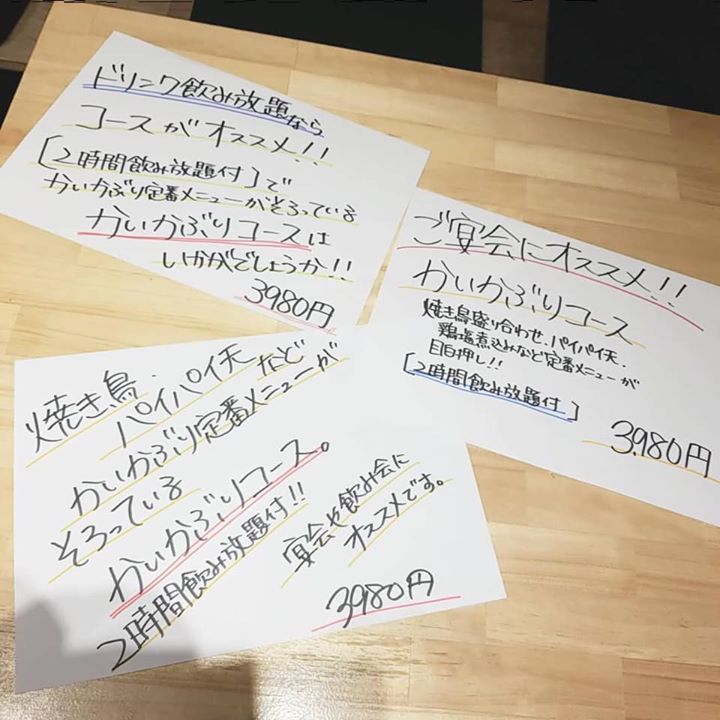 ドリンク飲み放題なら、
コースがオススメ!!
[2時間飲み放題付]で
かいかぶり定番メニューがそろっている
かいかぶりコースは
いかがでしょうか!!
3980円
ご宴会にオススメ!!
かいかぶりコース
焼き鳥盛り合わせ、パイパイ天、
鶏塩煮込みなど定番メニューが
目白押し!!
[2時間飲み放題付]
3,980円
焼き鳥、
パイパイ天など
かいかぶり定番メニューが
そろっている
かいかぶりコース。
2時間飲み放題付!!
宴会や飲み会に
オススメです。
3980円